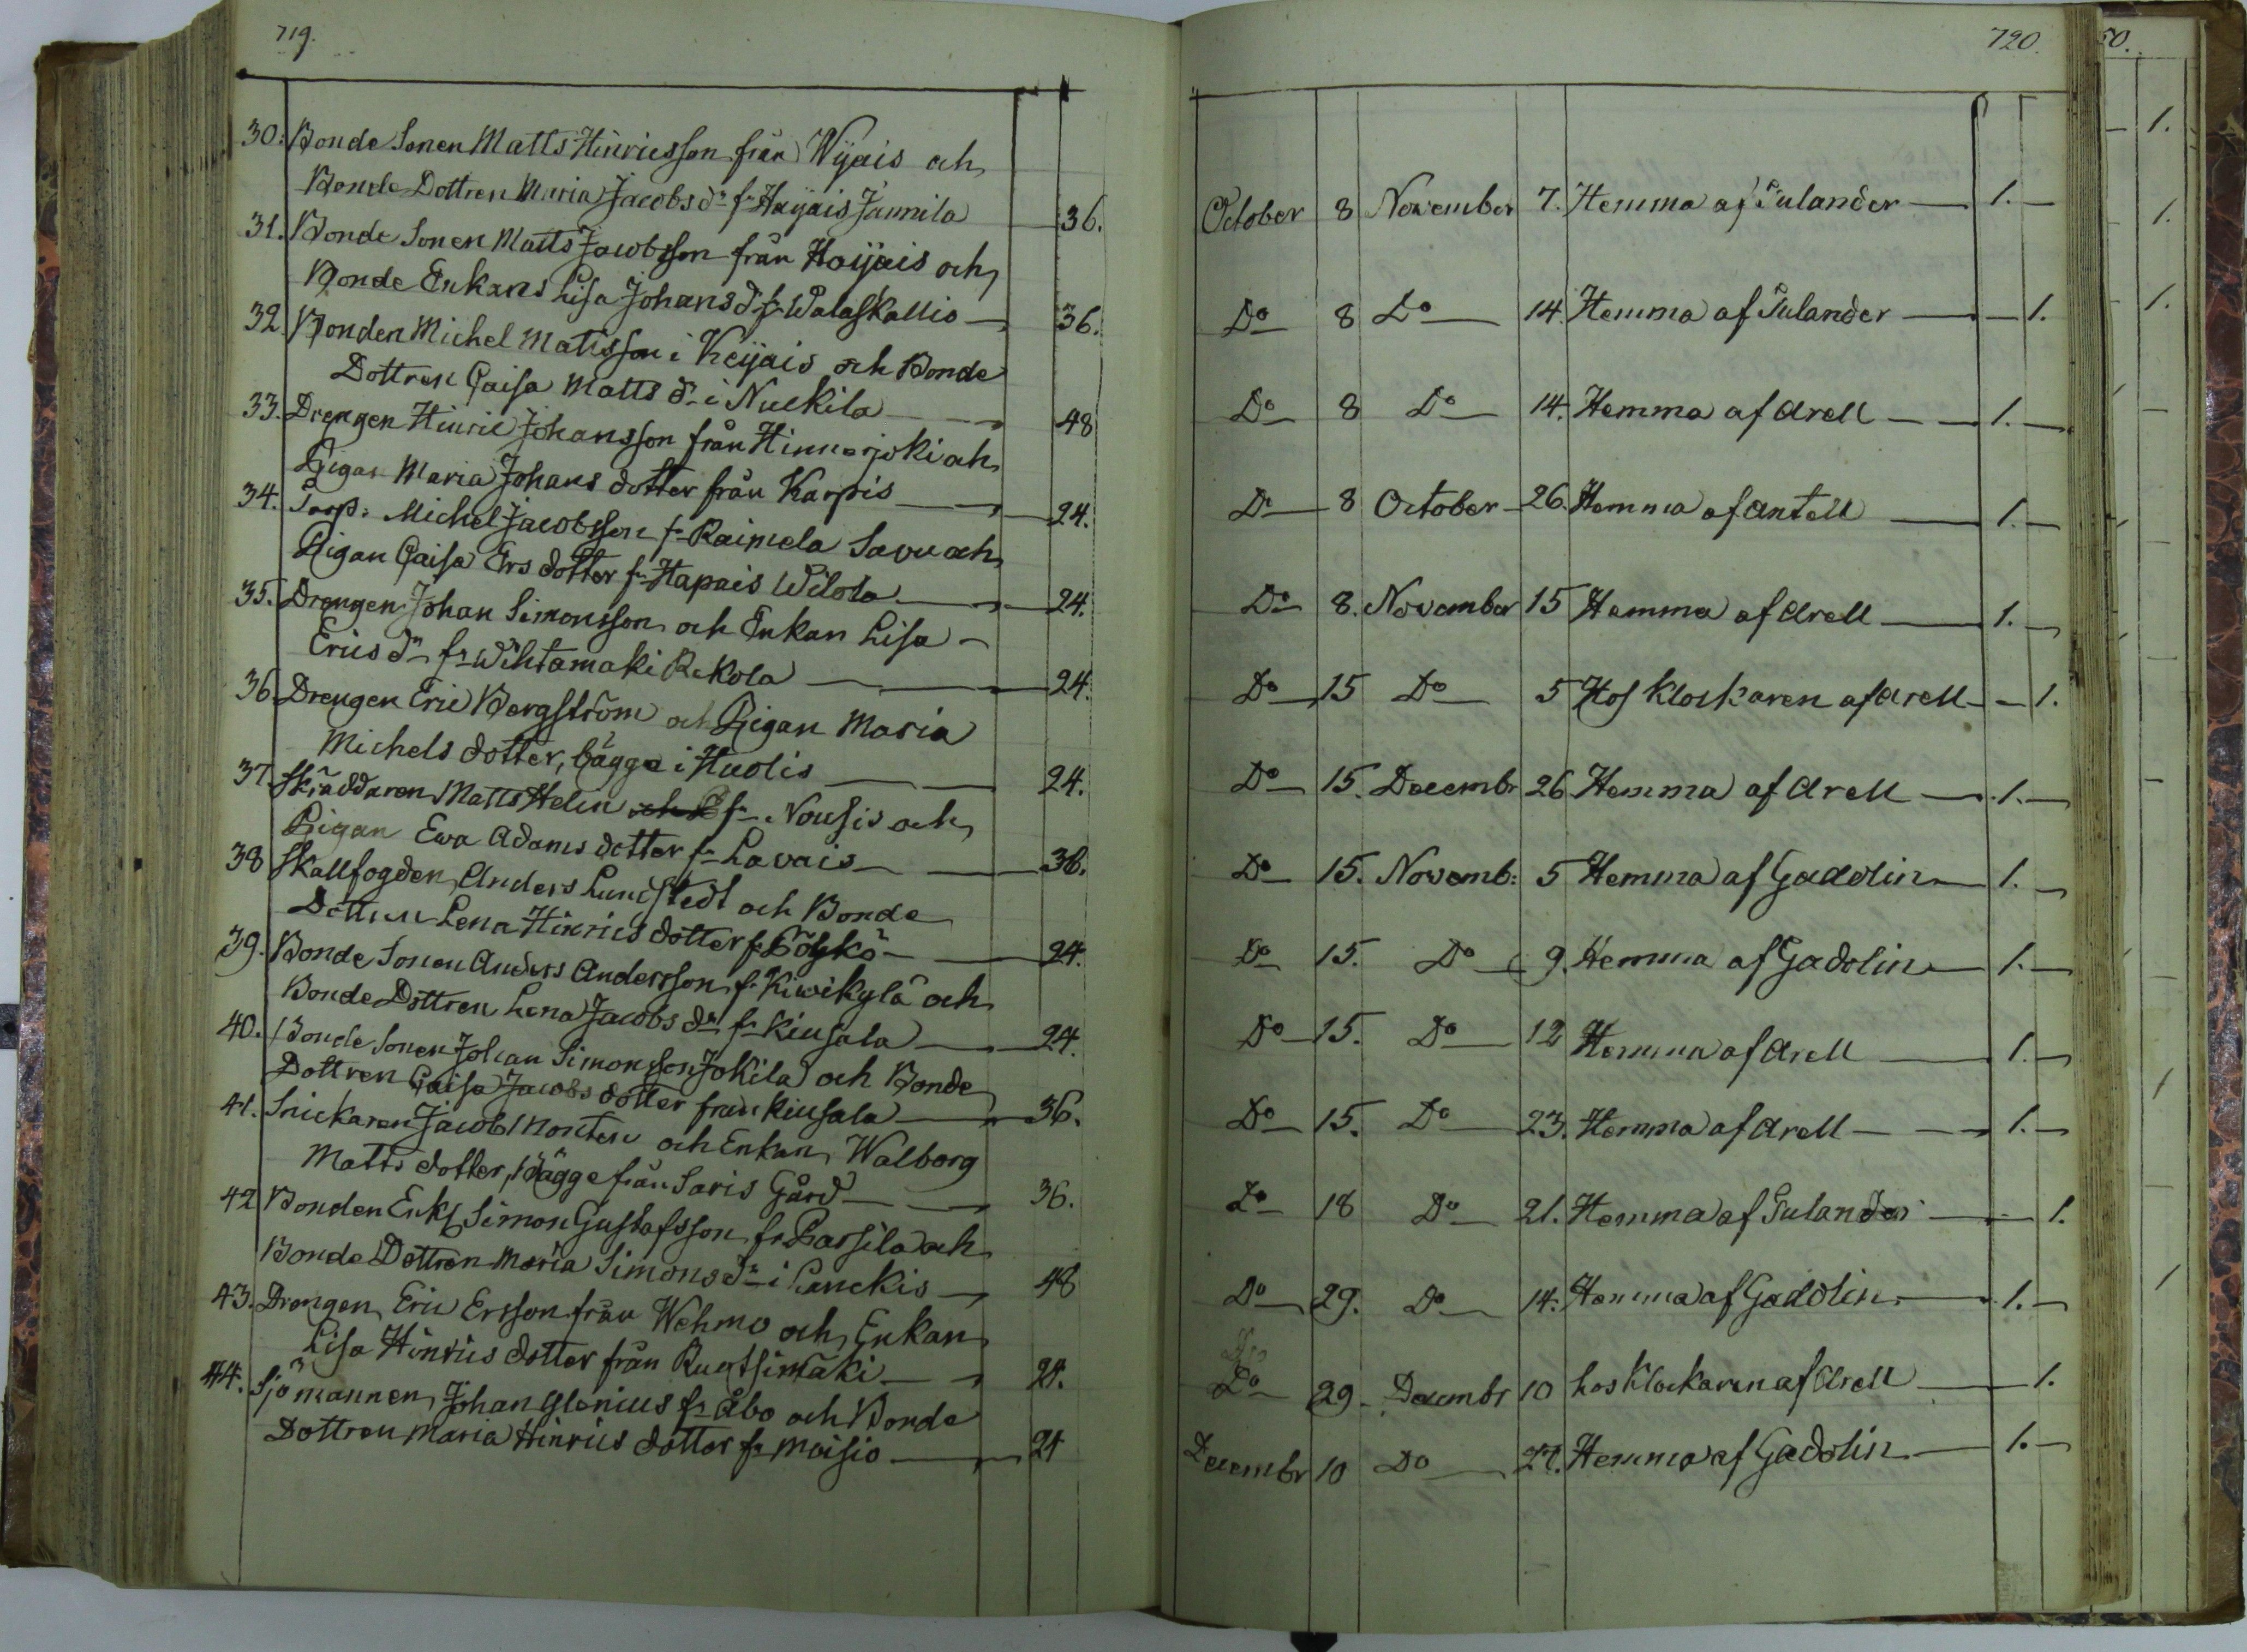 719.
30. Bonde Sonen Matts Hinricsson från Wijais och
Bonde Dottren Maria Jacobs dr fr Haijais Jannila 36.
31. Bonde Sonen Matts Jacobsson från Haijais och
Bonde Enkans Lisa Johans dr fr Walaskallio 36.
32. Bonden Michel Matsson i Keijais och Bonde
Dottren Caisa Matts dr i Nuckila 48
33. Drengen Hinric Johansson från Hinnerjoki och
Pigan Maria Johans dotter från Karpis 24.
34. Torp: Michel Jacobsson fr Raimela Savu och
Pigan Caisa Ers dotter fr Hapais Wilola 24.
35. Drengen Johan Simonsson och Enkan Lisa
Erics dr fr Wihtamaki Rekola 24.
36. Drengen Eric Bergström och Pigan Maria
Michels dotter, bägge i Huolis 24.
37. Skräddaren Matts Helin fr Nousis och
Pigan Ewa Adams dotter fr Lavais 36.
38 Skallfogden Anders Lundstedt och Bonde
Dottren Lena Hinrics dotter fr 24.
39. Bonde Sonen Anders Andersson fr Kiwikylä och
Bonde Dottren Lena Jacobs dr fr Kiusala 24.
40. Bonde Sonen Johan Simonsson Jokila och Bonde
Dottren Caisa Jacobs dotter från Kiusala 36.
41. Snickaren Jacob Monten och Enkan Walborg
Matts dotter, bägge från Saris Gård 36.
42 Bonden Enkl Simon Gustafsson fr Passila och
Bonde Dottren Maria Simons dr i Lanckis 48
43. Drengen Eric Ersson från Wehmo och Enkan
Lisa Hinrics dotter från Ruotsimäki 24.
44. Sjömannen Johan Glenius fr Åbo och Bonde
Dottren Maria Hinrics dotter fr Moisio 24
720.
October 8 November 7. Hemma af Tulander 1.
Do 8 Do 14. Hemma af Tulander 1.
Do 8 Do 14. Hemma af Arell 1.
Do 8 October 26. Hemma af Antell 1.
Do 8. November 15 Hemma af Arell 1.
Do 15 Do 5 Hos Klockaren af Arell 1.
Do 15. Decembr 26 Hemma af Arell 1.
Do 15. Novemb: 5 Hemma af Gadolin 1.
Do 15. Do 9. Hemma af Gadolin 1.
Do 15. Do 12 Hemma af Arell 1.
Do 15. Do 23. Hemma af Arell 1.
Do 18 Do 21. Hemma af Tulander 1.
Do 29. Do 14. Hemma af Gadolin 1.
Do 29 Decembr 10 hos Klockaren af Arell 1.
Decembr 10 Do 27. Hemma af Gadolin 1.
50.
1.
1.
1.
1
1